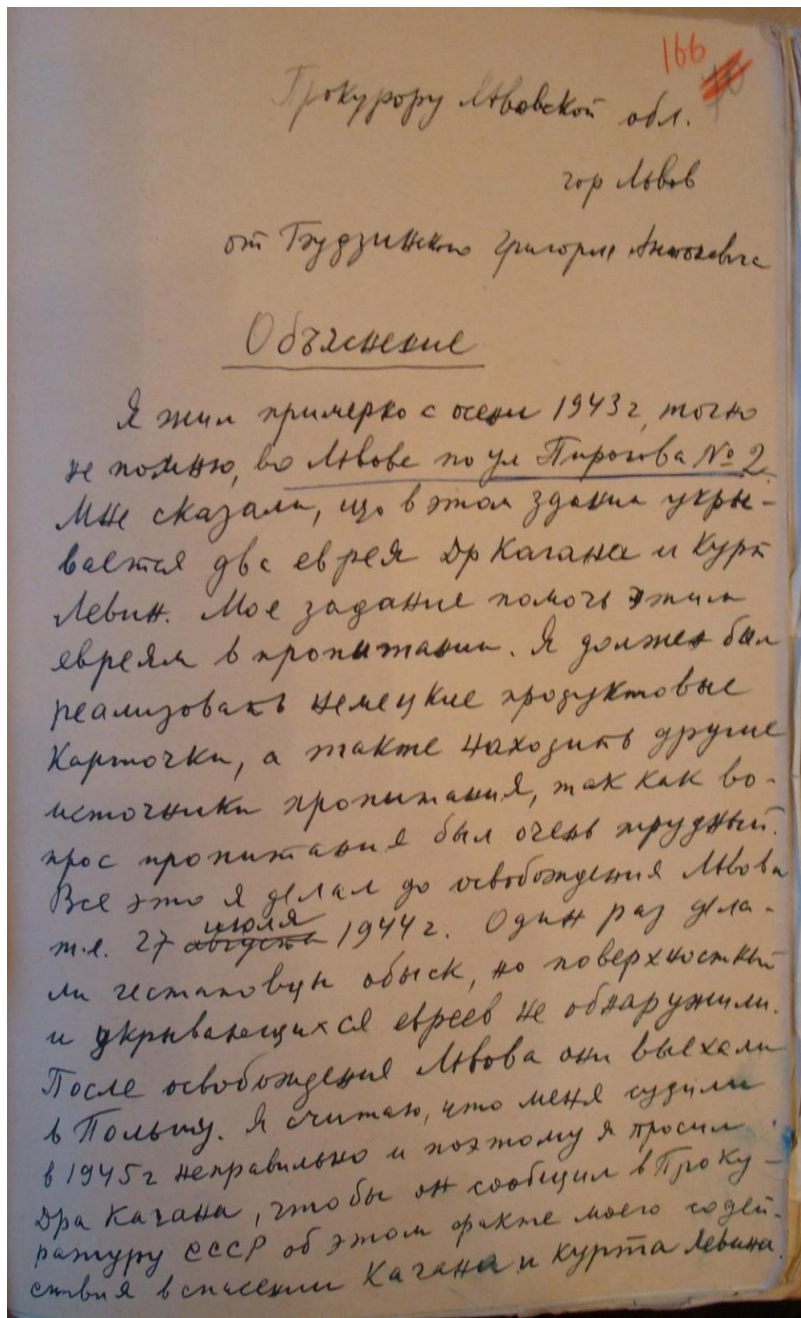 166
Прокурору Львовской обл.
гор Львов
от Будзинского Григория Антоновича
Объяснение
Я жил примерно с осени 1943 г, точно
не помню, во Львове по ул Пирогова № 2.
Мне сказали, що в этом здании укры-
вается два еврея Др Кагана и Курт
Левин. Мое задание помочь этим
евреям в пропитании. Я должен был
реализовать немецкие продуктовые
карточки, а также находить другие
источники пропитания, так как во-
прос пропитания был очень трудный.
Все это я делал до освобождения Львова
т.е. 27 августа июля 1944 г. Один раз дела-
ли гестаповцы обыск, но поверхностный
и укрывающихся евреев не обнаружили.
После освобождения Львова они выехали
в Польшу. Я считаю, что меня судили
в 1945 г неправильно и поэтому я просил
Дра Кагана, чтобы он сообщил в Проку-
ратуру СССР об этом факте моего содей-
ствия в спасении Кагана и Курта Левина.